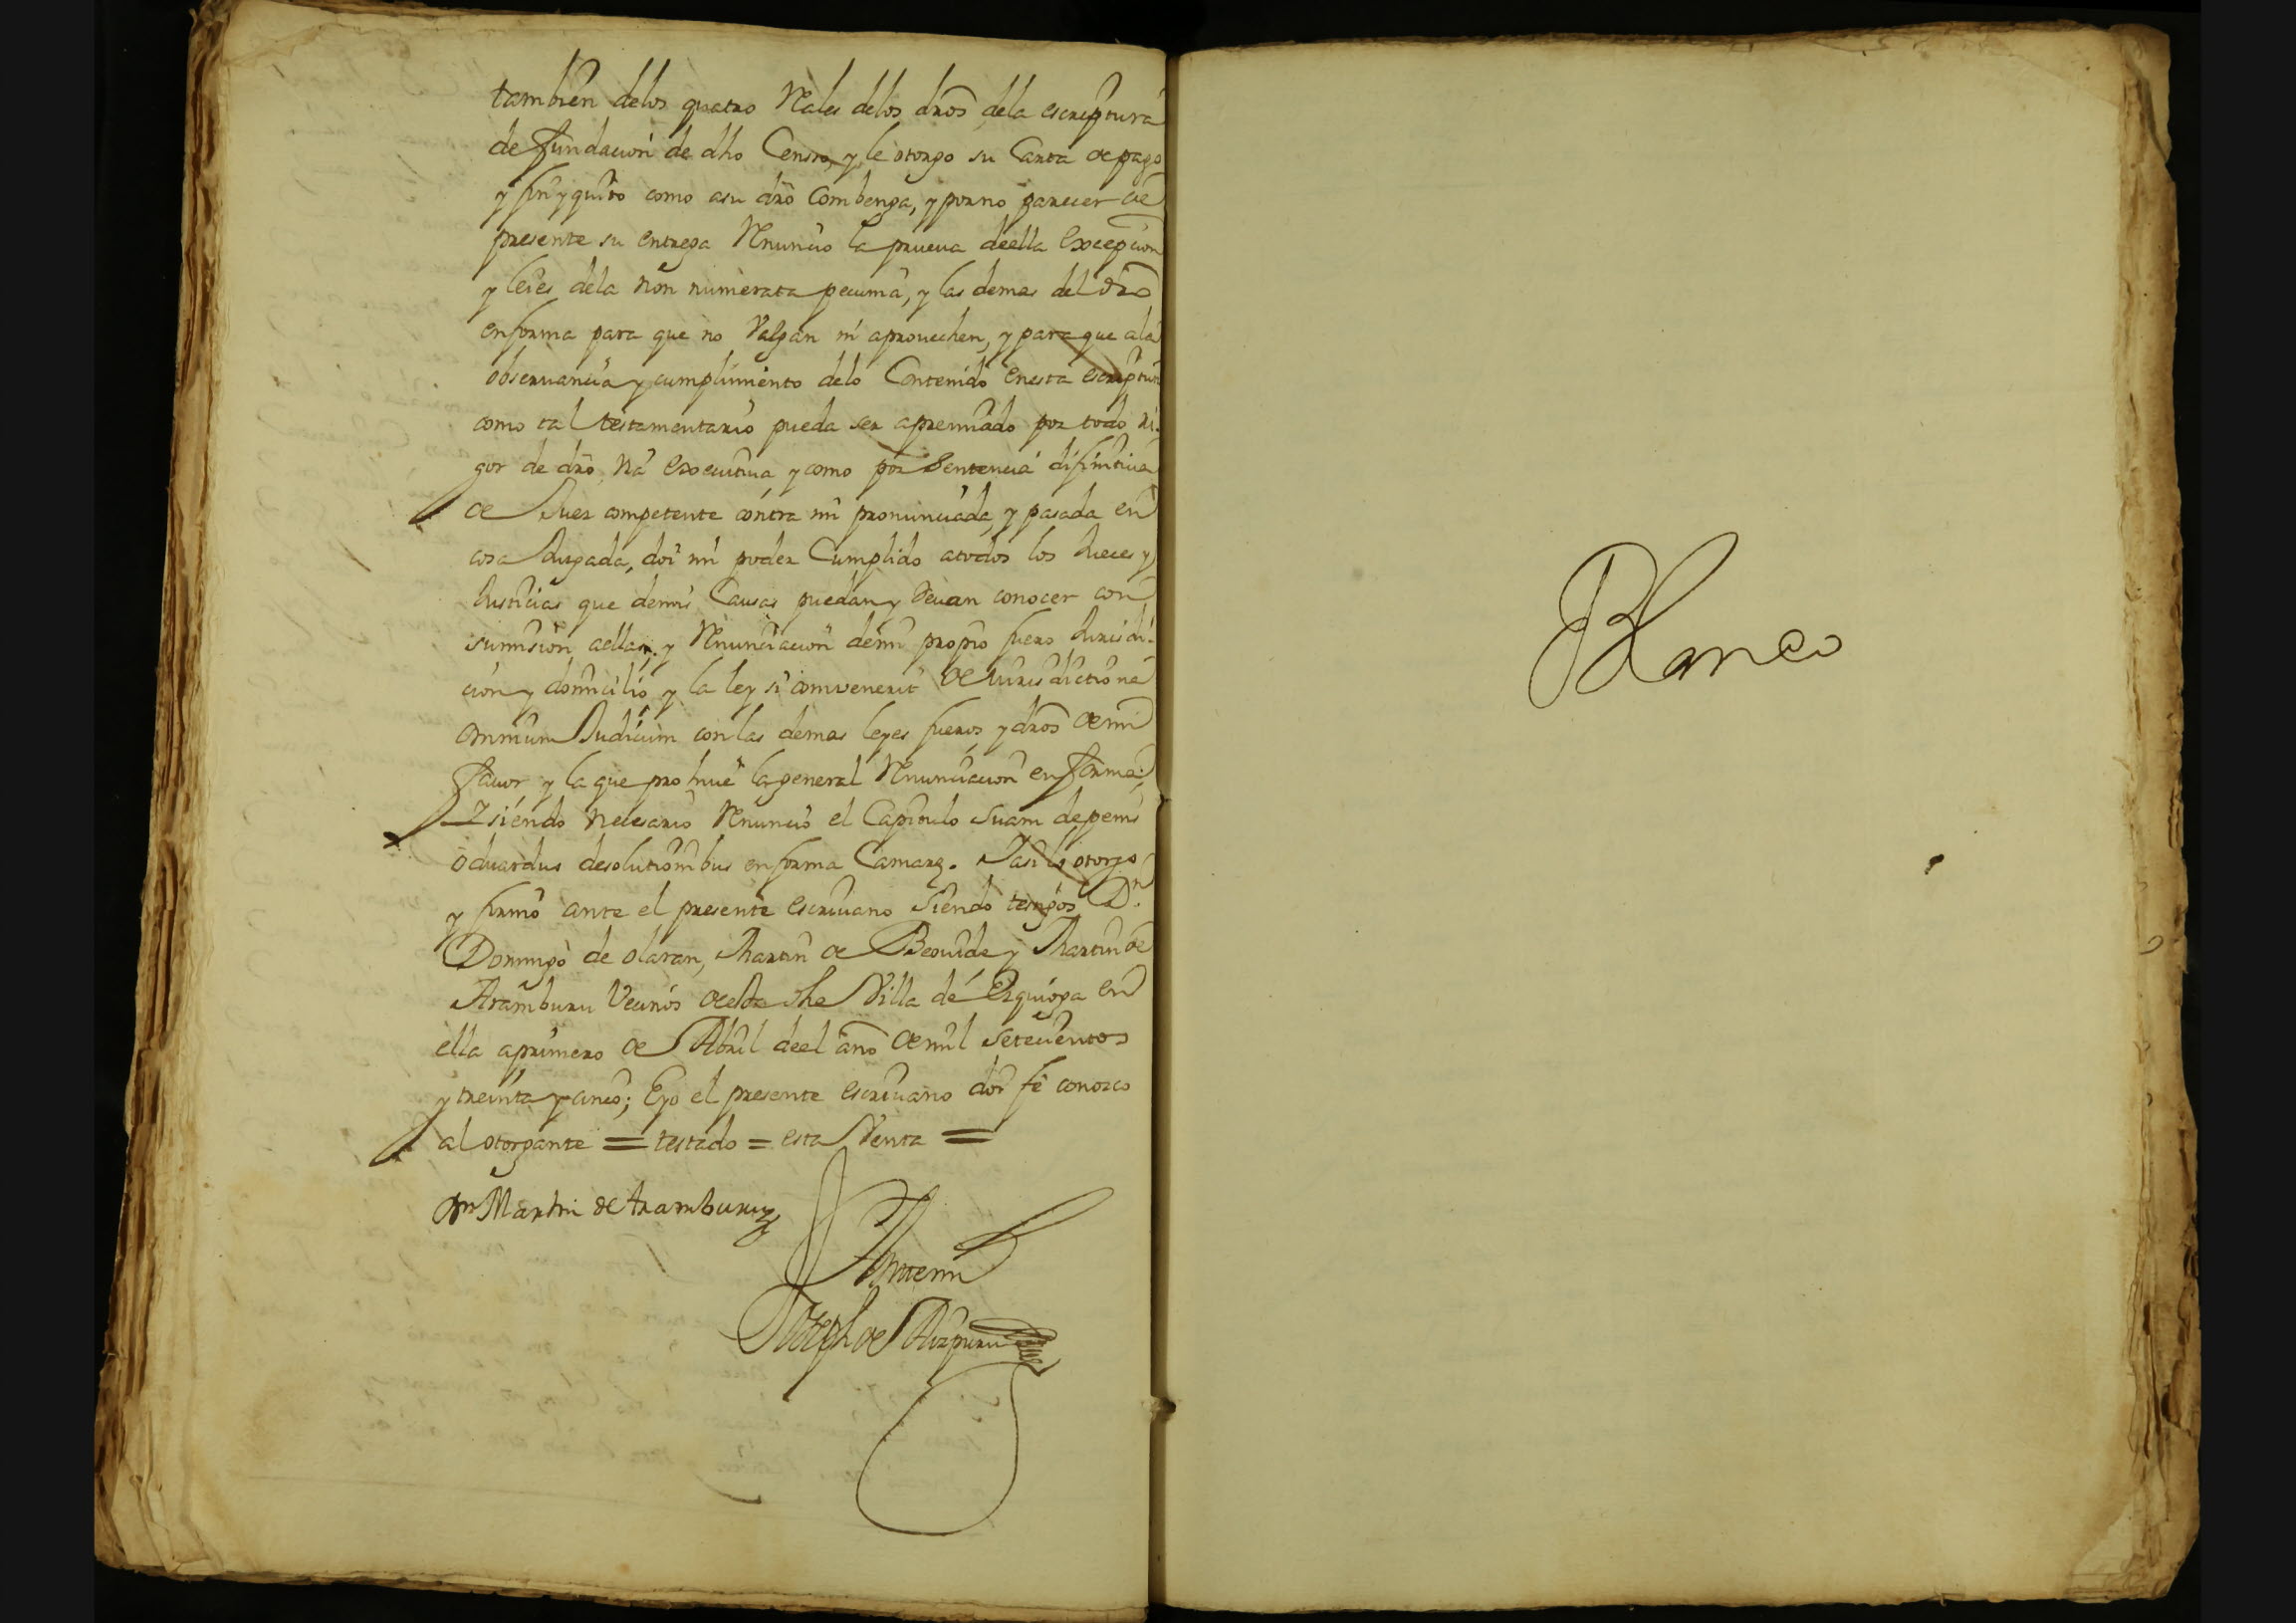 tambien delos quatro Rales delos dros dela escriptura
de fundacion de dho Censo, y le otorgo su Carta de pago
y fin y quito como asu dro Combenga, y por no parecer de
presente su entrega Renuncio la prueua deella Excepcion
y leies dela non numerata pecunia, y las demas del dro
en forma para que no Valgan ni aprouechen, y para que ala
obseruancia y cumplimiento delo Contenido enesta escriptura
como tal testamentario pueda ser apremiado por todo ri-
gor de dro, Via Executiua y como por Sentencia difinitiua
de Juez competente contra mi pronunciada, y pasada en
cosa Juzgada, doi mi poder Cumplido atodos los Jueces y
Justicias que demis Causas puedan y deuan conocer con
sumision aellas, y Renunciacion demi propio fuero Jurisdi-
cion y domicilio, y la ley si conuenerit de Jurisdictione
omnium Judicum con las demas leyes fueros y dros de mi
fauor y la que prohiue la general Renunciacion en forma;
Y siendo necesario Renuncio el Capitulo Suam de penis
oduardus desolutionibus en forma Camarę. Y asi lo otorgo
y firmo ante el presente escriuano Siendo testigos Dn
Domingo de olaran, Martin de Beouide y Martin de
Aramburu Vecinos de esta dha Villa de Ezquioga en
ella aprimero de Abril deel año de mil setecientos
y treinta y cinco; E yo el presente escriuano doi fe conozco
al otorgante = testado = esta Venta =
Dn Martin de Aramburu
Antemi
Joseph de Aizpuru
Blanco